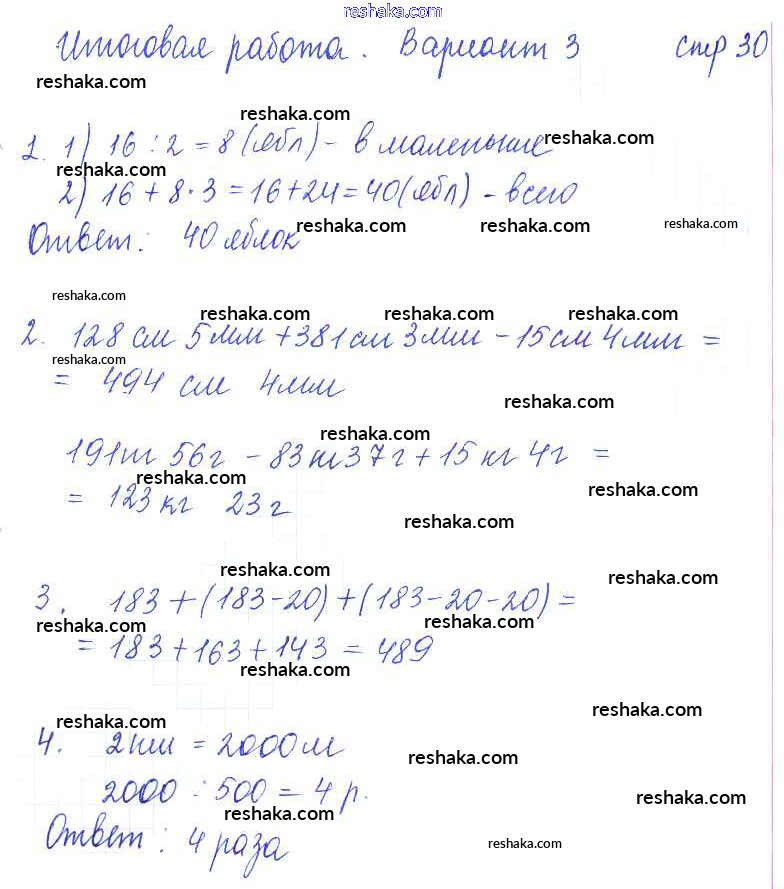 reshaka.com
Итоговая работа. Вариант 3 стр 30
reshaka.com
reshaka.com
1. 1) 16 : 2 = 8 (ябл) - в маленьние reshaka.com
reshaka.com
2) 16 + 8 · 3 = 16 + 24 = 40 (ябл) - всего
Ответ: 40 яблок reshaka.com reshaka.com reshaka.com
reshaka.com
reshaka.com reshaka.com reshaka.com
2. 128 см 5 мм + 381 см 3 мм - 15 см 4 мм =
reshaka.com
= 494 см 4 мм
reshaka.com
reshaka.com
191 кг 56 г - 83 кг 37 г + 15 кг 4 г =
reshaka.com
= 123 кг 23 г reshaka.com
reshaka.com
reshaka.com reshaka.com
3. 183 + (183 - 20) + (183 - 20 - 20) =
reshaka.com reshaka.com
= 183 + 163 + 143 = 489
reshaka.com
reshaka.com reshaka.com
4. 2 км = 2000 м
reshaka.com
2000 : 500 = 4 р.
reshaka.com reshaka.com
Ответ: 4 раза reshaka.com